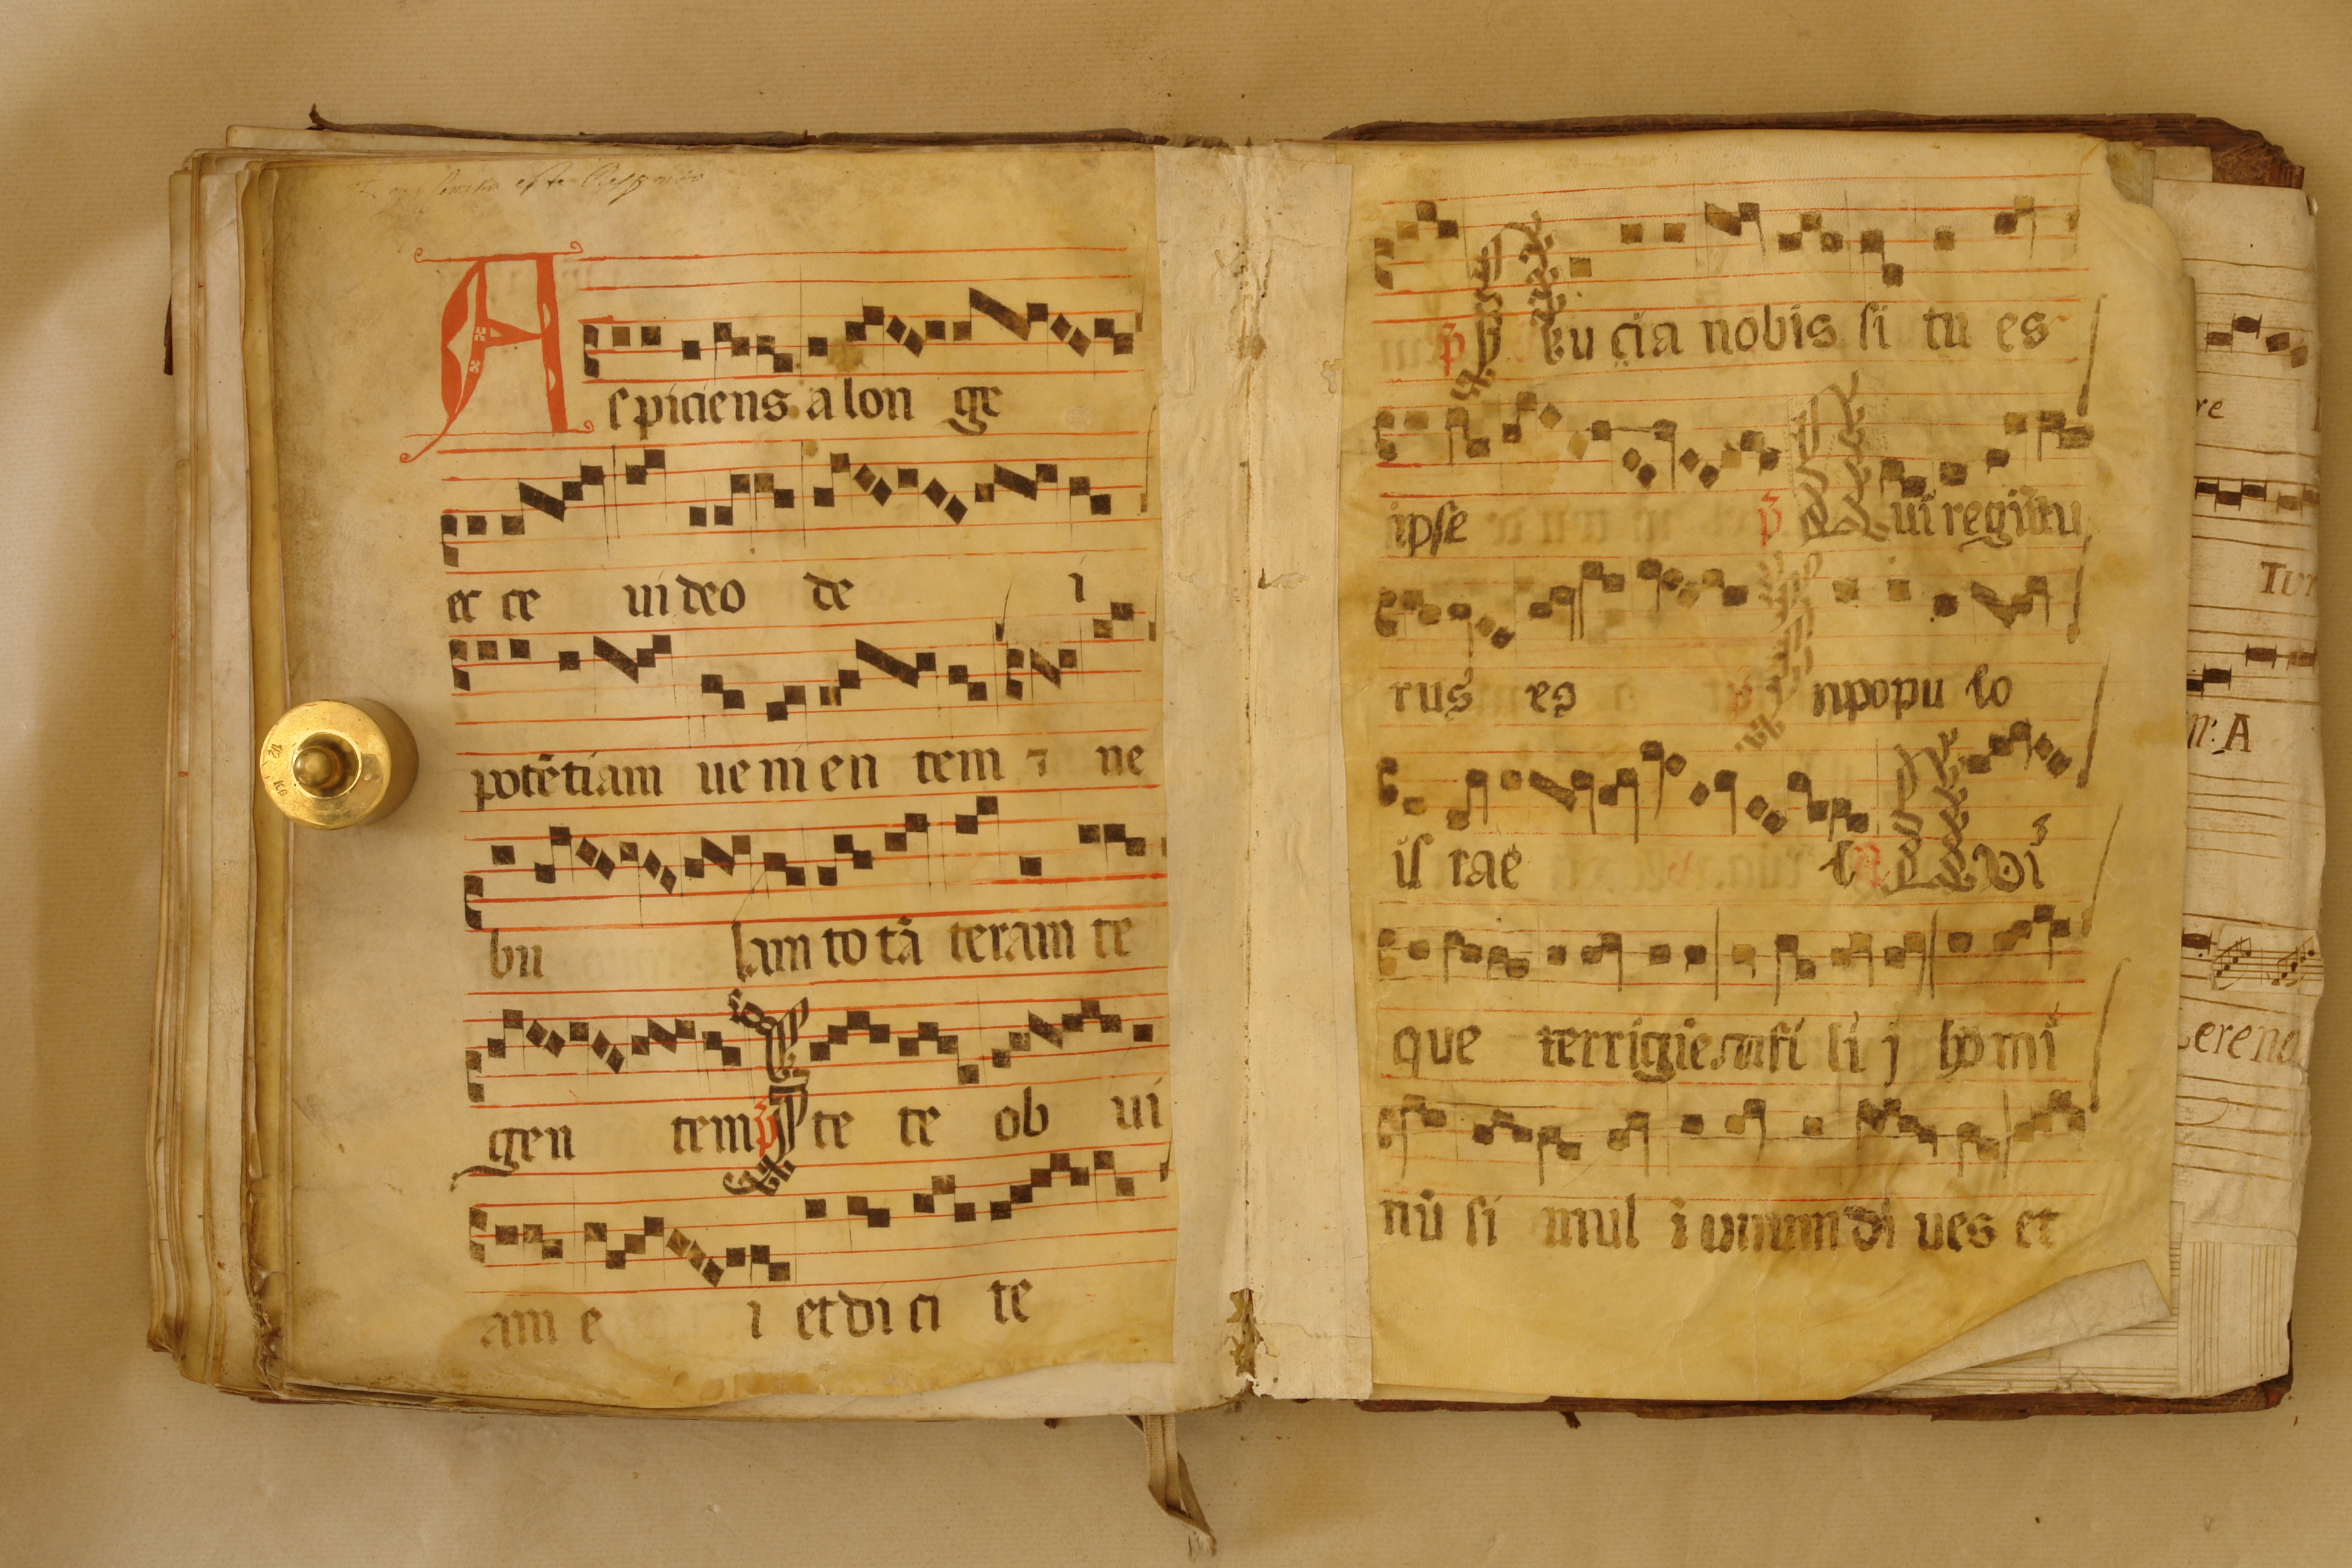 Aspiciens a lon ge
ec ce ui deo de i
potētiam ue ni en tem ⁊ ne
bu lam to tā teram te
gen tem p̄ Ite te ob ui
am e i et di ci te
p̄ N bu cia nobis si tu es
ipse p̄ Qui regnatu
rus es p̄ I npopu lo
is rae l Qui
que terrigine fi li j homi
nū si mul i unum di ues et
re
A
erena